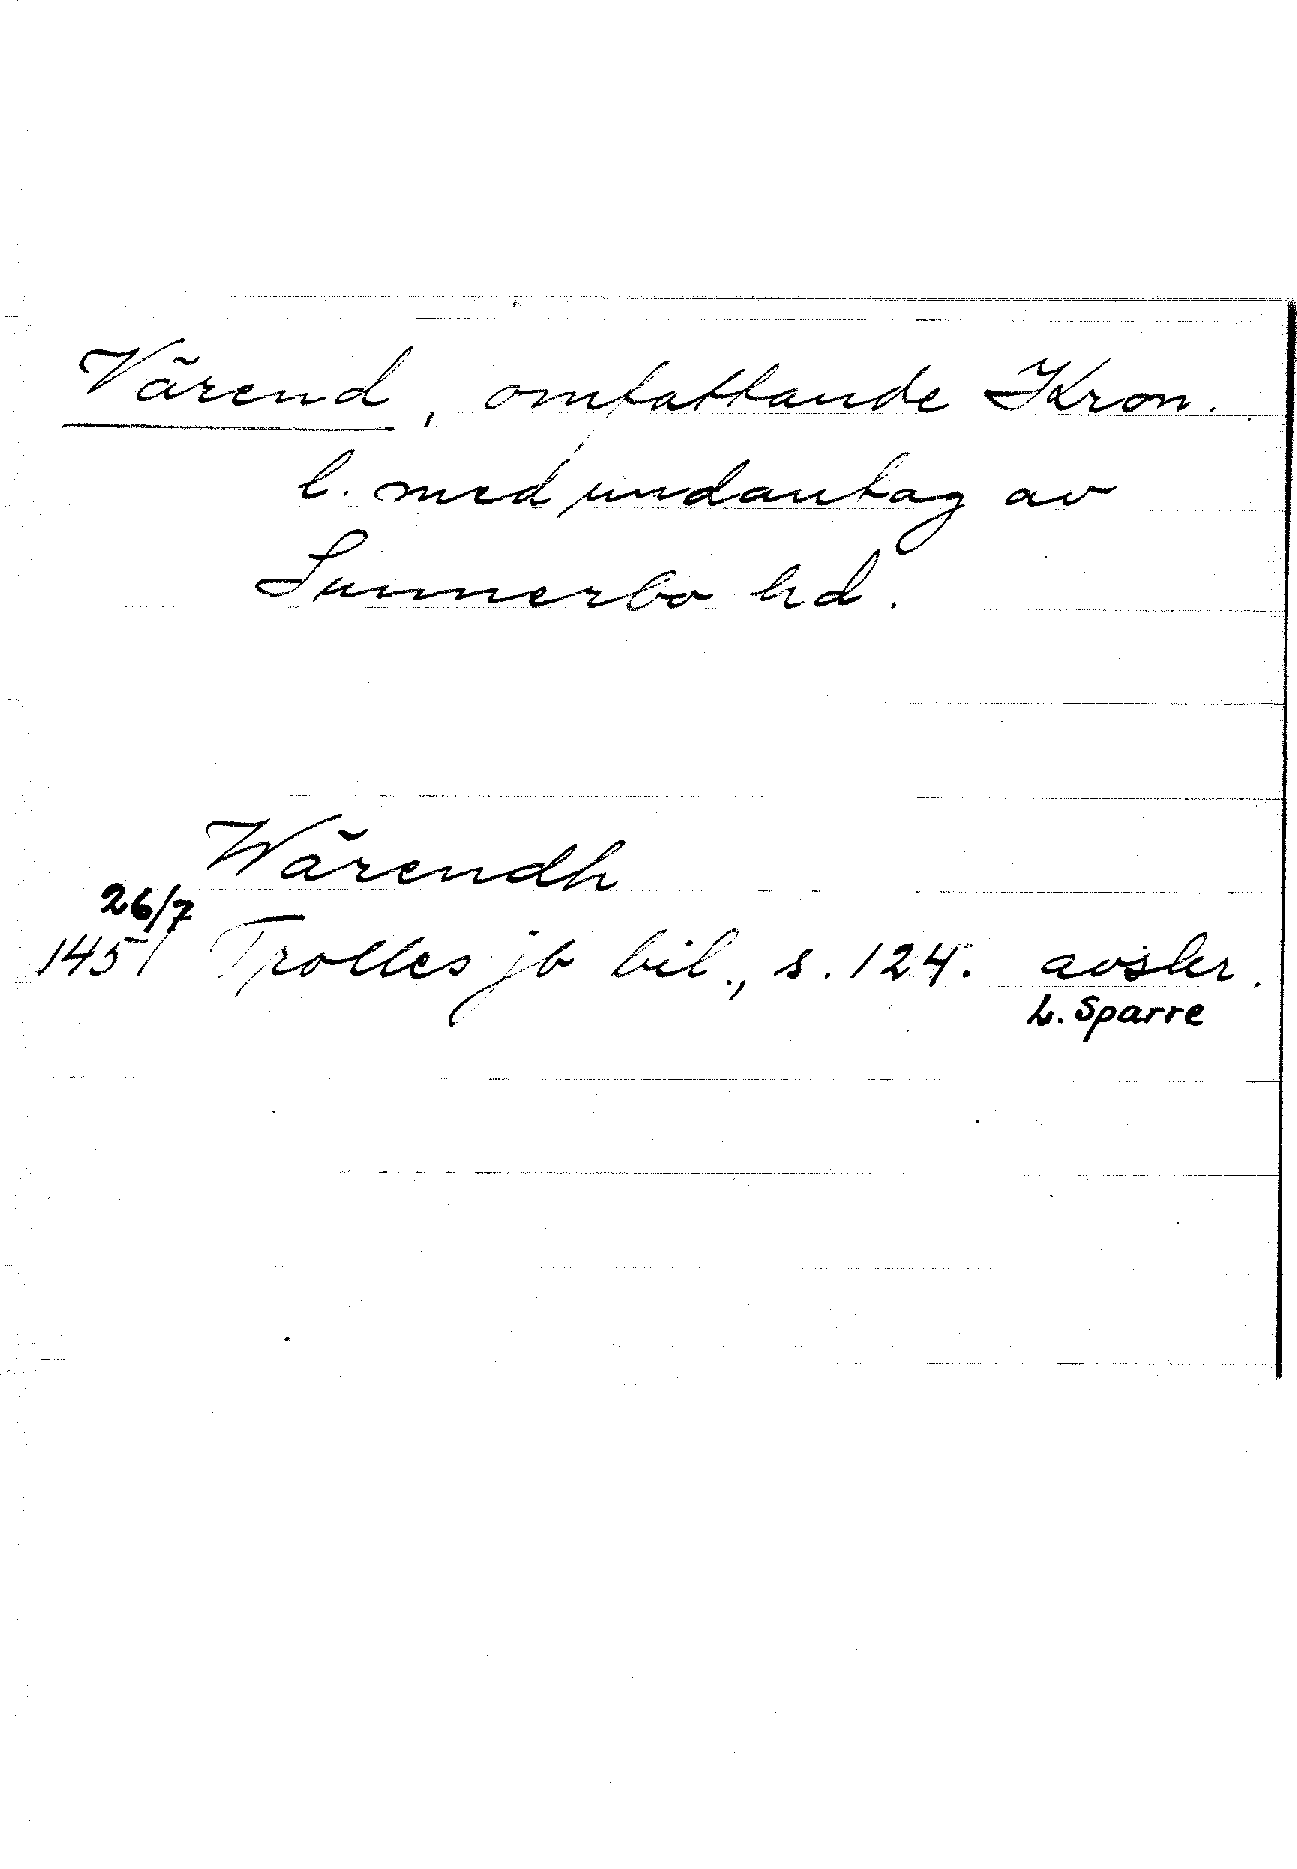 Värend, omfattande Kron.
l. med undantag av
Sunnerbo hd.
Wärendh
26/7
1451 Trolles jb bil., s. 124. avskr.
L. Sparre